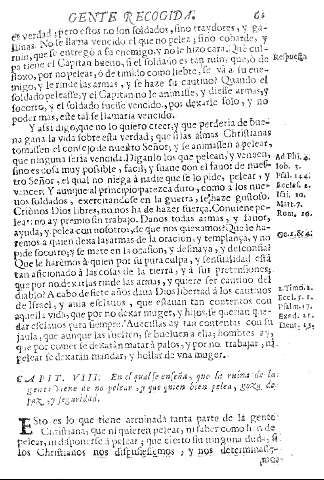 GENTE RECOGIDA. 61
es verdad; pero estos no son soldados, sino traydores, y ga-
llinas. No se llama vencido el que no pelea, sino cobarde, y
ruin, que se entregó a su enemigo, y no le hizo cara. Que cul-
pa tiene el Capitan bueno, si el soldado es tan ruin, que ò de
floxo, por no pelear, ò de timido como liebre, se và a su ene-
migo, y le rinde las armas, y se haze su cautivo? Quando el
soldado peleasse, y el Capitan no le animasse, y diesse armas, y
socorro, y el soldado fuesse vencido, por dexarle solo, y no
poder mas, este tal se llamaria vencido.
Respuesta
Y assi digo, que no lo quiero creer, y que perderia de bue-
na gana la vida sobre esta verdad; que si las almas Christianas
tomassen el consejo de nuestro Señor, y se animassen a pelear,
que ninguna seria vencida. Diganlo los que pelean, y vencen,
sino es cosa muy possible, facil, y suave con el favor de nues-
tro Señor, el qual no niega a nadie que se lo pide, pelear, y
vencer. Y aunque al principio parezca duro, como a los nue-
vos soldados, exercitandose en la guerra, se haze gustoso.
Crionos Dios libres, no nos ha de hazer fuerça. Conviene pe-
lear: no ay premio sin trabajo. Danos todas armas, y favor,
ayuda, y pelea con nosotros, de que nos quexamos? Que le ha-
remos a quien dexa las armas de la oracion, y templança, y no
pide socorro; y se mete en la ocasion, y desmaya, y desconfia?
Que le harèmos à quien por su pura culpa, y sensualidad està
tan aficionado à las cosas de la tierra, y à sus pretensiones,
que por no dexarlas rinde las armas, y quiere ser cautivo del
diablo? A cabo de siete años dava Dios libertad à los cautivos
de Israel, y avia esclavos, que estavan tan contentos con
aquella vida, que por no dexar muger, y hijos, se querian que-
dar esclavos para siempre. Avecillas ay tan contentas con su
jaula, que aunque las suelten, se buelven a ella; hombres ay,
que por comer se dexaràn matar à palos, y por no trabajar, ni
pelear se dexaràn mandar, y hollar de vna muger.
Iob. 7.
Psal. 144.
Eccles. 2.
Isai. 10.
Matt. 7.
Rom. 10.
2. Timot. 2.
Exod. 21.
CAPIT. VIII. En el qual se enseña, que la ruina de la
gente viene de no pelear, y que quien bien pelea, goza de
paz, y seguridad.
Esto es lo que tiene arruinada tanta parte de la gente
Christiana, que ni quieren pelear, ni saber como han de
pelear, ni disponerse à pelear; que cierto sin ninguna duda, si
los Christianos nos dispusiessemos, y nos determinasse-